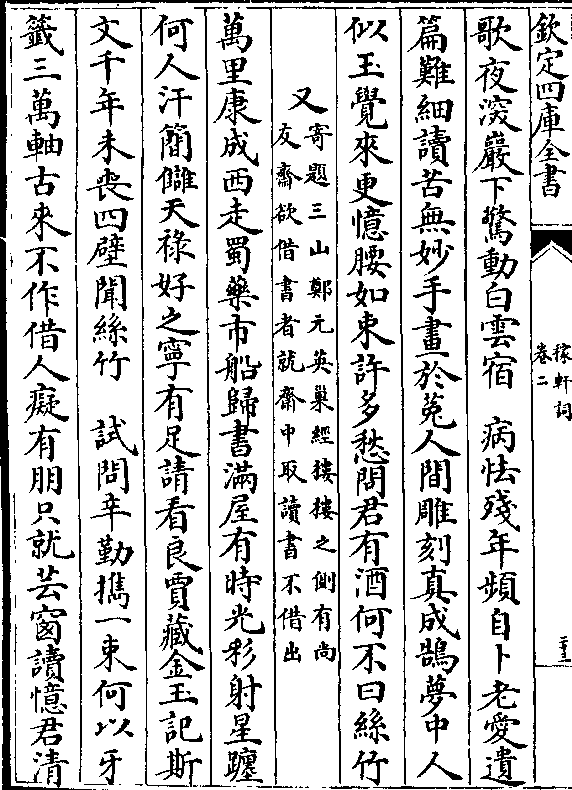 欽定四庫全書
稼軒詞
卷二
二十三
歌夜深巖下驚動白雲宿　病怯殘年頻自卜老愛遺
篇難細讀苦無妙手畫於菟人間雕刻真成鵠夢中人
似玉覺來更憶腰如束許多愁問君有酒何不曰絲竹
又寄題三山鄭元英巢經樓樓之側有尚
友齋欲借書者就齋中取讀書不借出
萬里康成西走蜀藥市船歸書滿屋有時光彩射星躔
何人汗簡讎天祿好之寧有足請看良賈藏金玉記斯
文千年未喪四壁聞絲竹　試問辛勤攜一束何以牙
籤三萬軸古來不作借人癡有朋只就芸窗讀憶君清